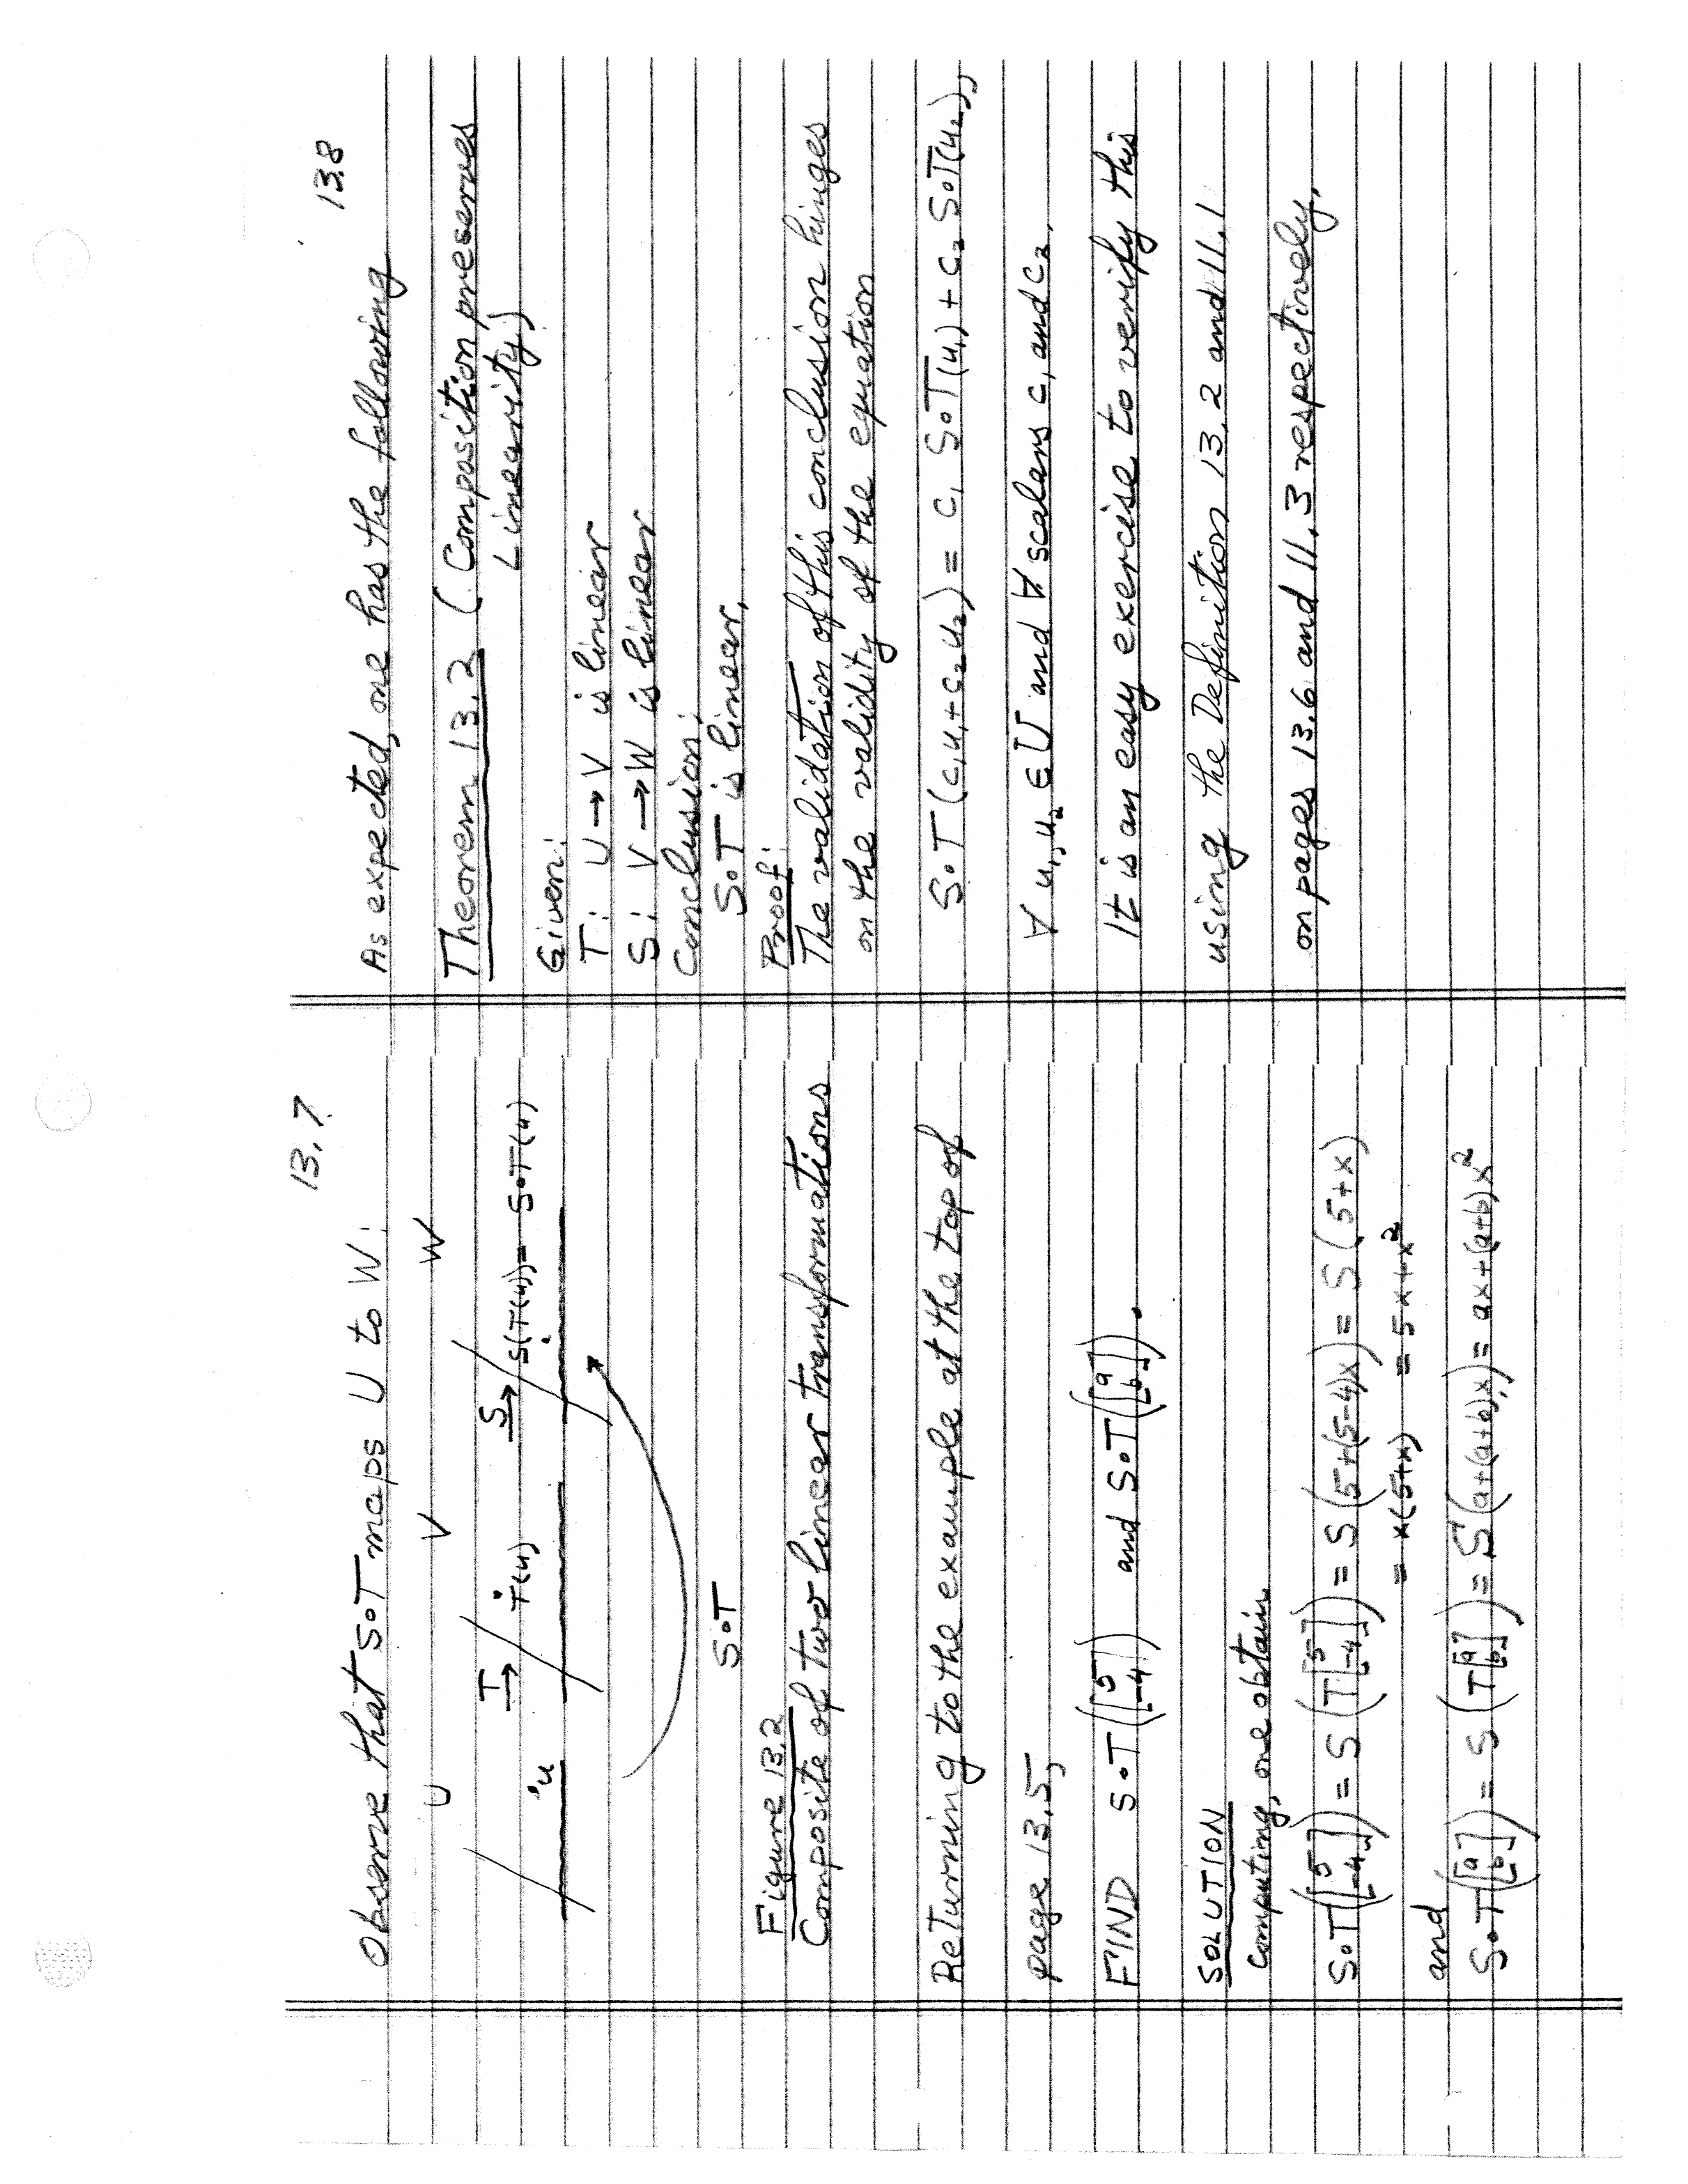 13.7
Observe that S∘T maps U to W:
U V W
T→ S→
u T(u) S(T(u))= S∘T(u)
S∘T
Figure 13.2
Composite of two linear transformations
Returning to the example at the top of
page 13.5,
FIND S∘T([5 -4]) and S∘T([a b]).
SOLUTION
Computing, one obtain
S∘T([5 -4]) = S(T[5 -4]) = S(5+(5-4)x) = S(5+x)
= x(5+x) = 5x+x²
and
S∘T([a b]) = S(T[a b]) = S(a+(a+b)x) = ax+(a+b)x²
13.8
As expected, one has the following
Theorem 13.2 (Composition preserves
Linearity)
Given:
T: U→V is linear
S: V→W is linear
Conclusion:
S∘T is linear.
Proof:
The validation of this conclusion hinges
on the validity of the equation
S∘T(c₁u₁+c₂u₂) = c₁ S∘T(u₁) + c₂ S∘T(u₂),
∀ u₁,u₂ ∈ U and ∀ scalars c₁ and c₂.
It is an easy exercise to verify this
using the Definition 13.2 and 11.1
on pages 13.6 and 11.3 respectively.